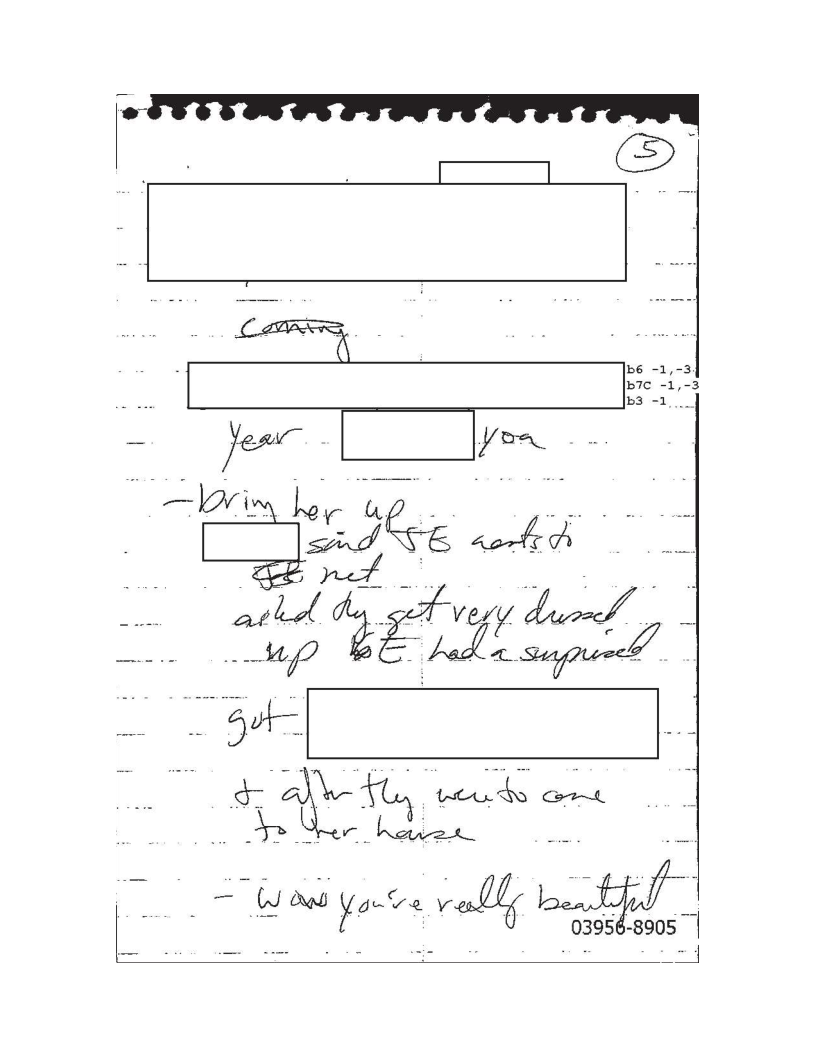 5
Coming
b6 -1,-3
b7C -1,-3
b3 -1
Year yoa
- bring her up
said JE wants to
JE net
asked they get very dressed
up JE had a surprised
got
+ after they were to come
to her house
- wow you're really beautiful
03956-8905